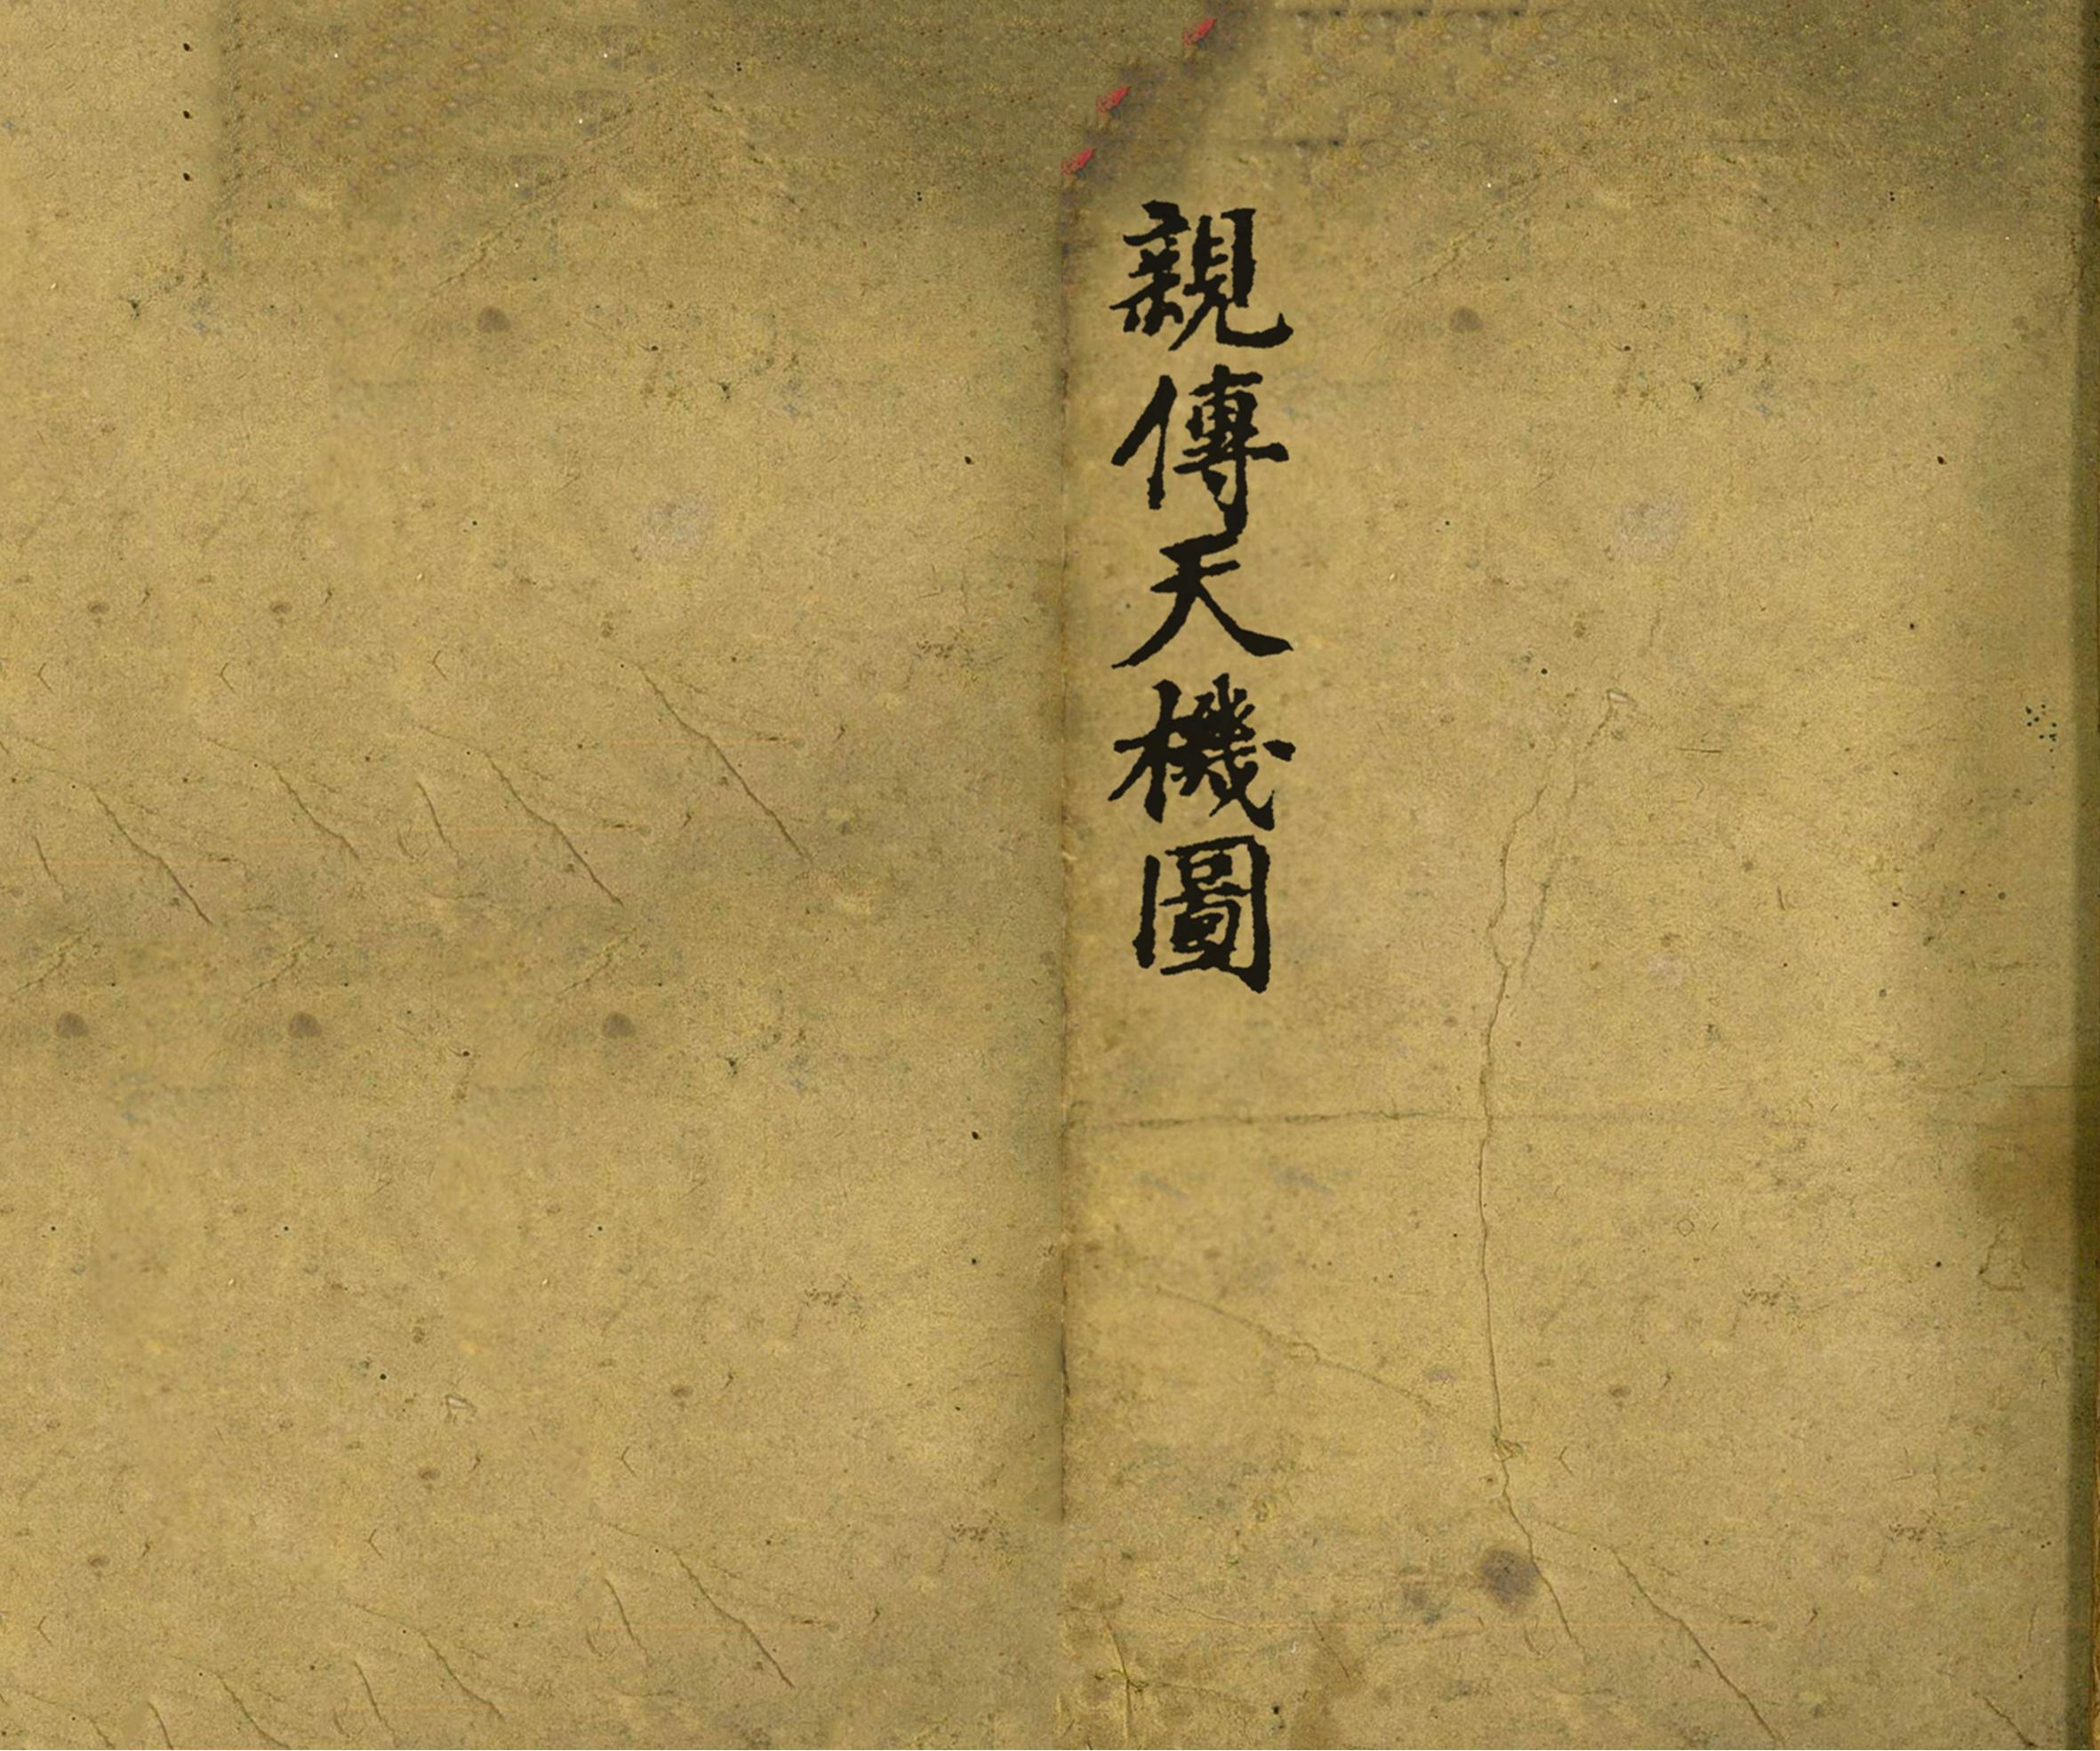 親傳天機圖